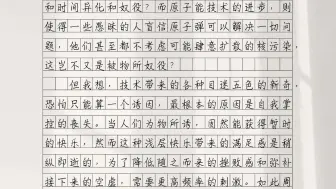 和时间异化和奴役？而原子能技术的进步，则
使得一些愚昧的人盲信原子弹可以解决一切问
题，他们甚至都不考虑可能肆意扩散的核污染，
这岂不又是被物所奴役？
但我想，技术带来的各种目迷五色的新奇，
恐怕只能算一个诱因，最根本的原因是自我掌
控的丧失。当人们为物所诱，固然能获得暂时
的快乐，然而这种浅层快乐带来的满足感是稍
纵即逝的，为了降低随之而来的挫败感和弥补
接下来的空虚，需要更高频率的刺激。如此周